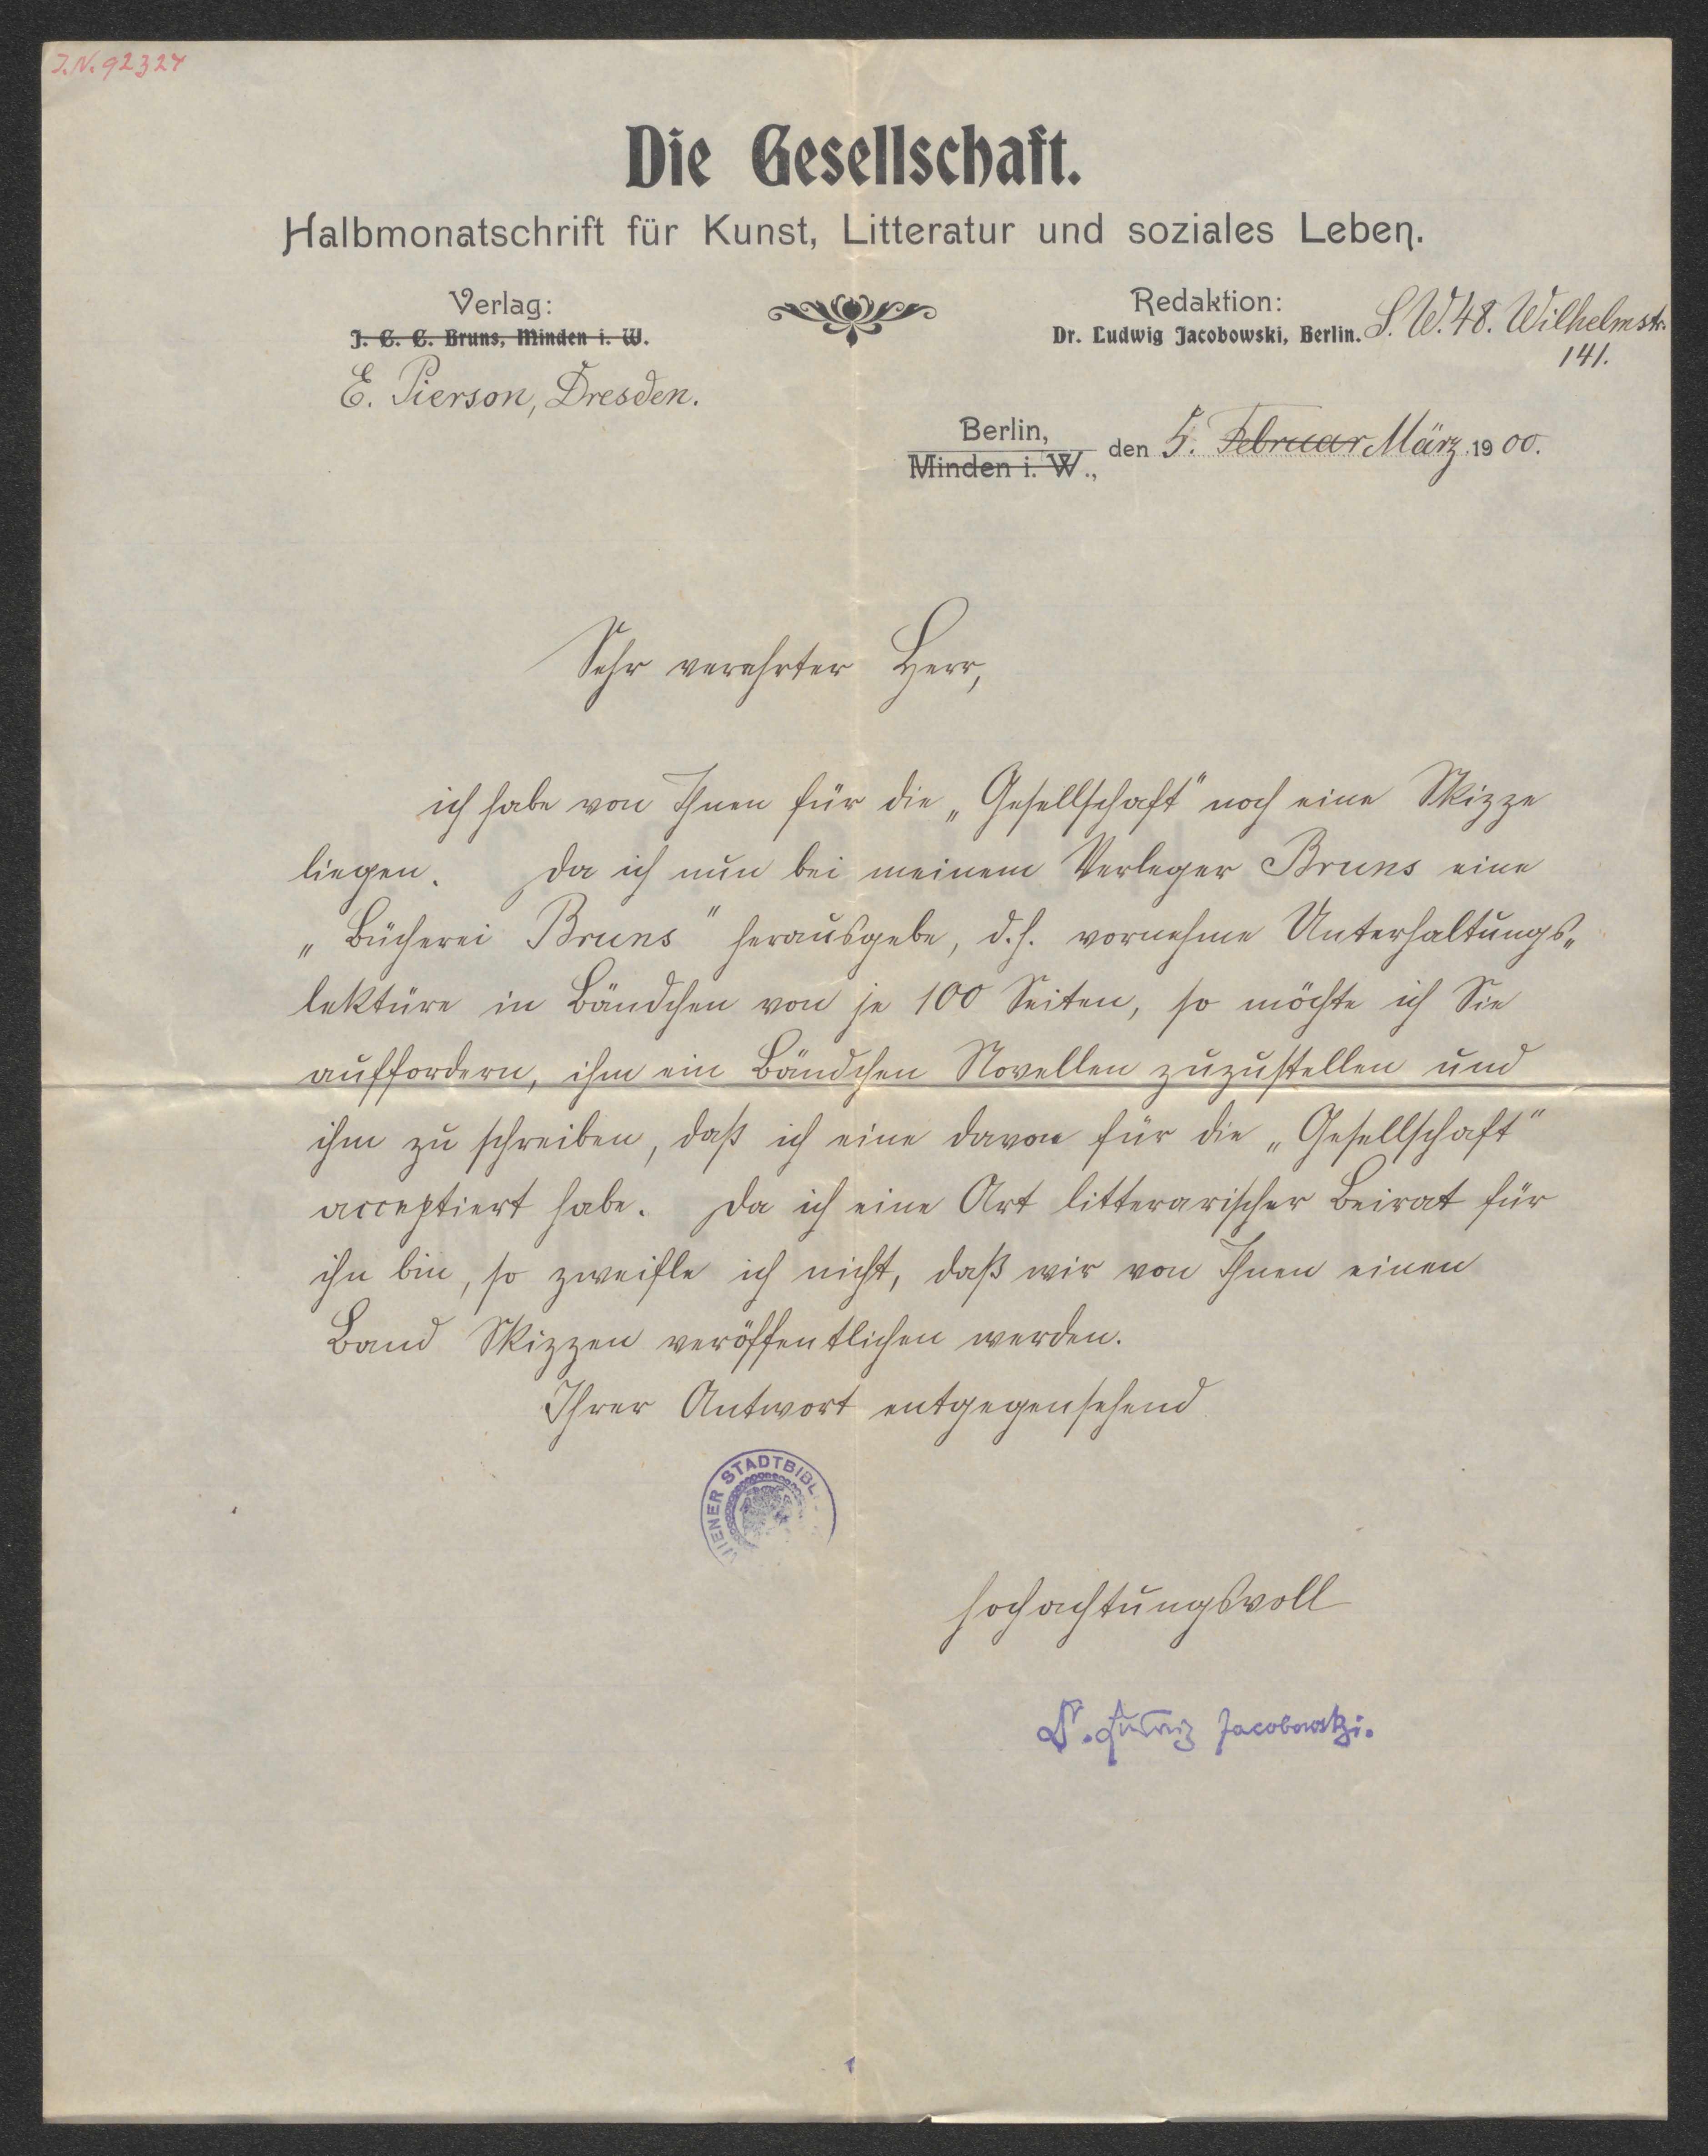 J.N. 92324
Die Gesellschaft.
Halbmonatschrift für Kunst, Litteratur und soziales Leben.
Verlag:
J. C. C. Bruns, Minden i. W.
E. Pierson, Dresden.
Redaktion:
Dr. Ludwig Jacobowski, Berlin. S. W. 48. Wilhelmstr.
141.
Berlin,
Minden i. W., den 5. Februar März 1900.
Sehr verehrter Herr,
ich habe von Ihnen für die „Gesellschaft" noch eine Skizze
liegen. Da ich nun bei meinem Verleger Bruns eine
„Bücherei Bruns" herausgebe, d.h. vornehme Unterhaltungs„
lektüre in Bändchen von je 100 Seiten, so möchte ich Sie
auffordern, ihm ein Bändchen Novellen zuzustellen und
ihm zu schreiben, daß ich eine davon für die „Gesellschaft"
acceptiert habe. Da ich eine Art litterarischer Beirat für
ihn bin, so zweifle ich nicht, daß wir von Ihnen einen
Band Skizzen veröffentlichen werden.
Ihrer Antwort entgegensehend
WIENER STADTBIBL
hochachtungsvoll
Dr. Ludwig Jacobowski.